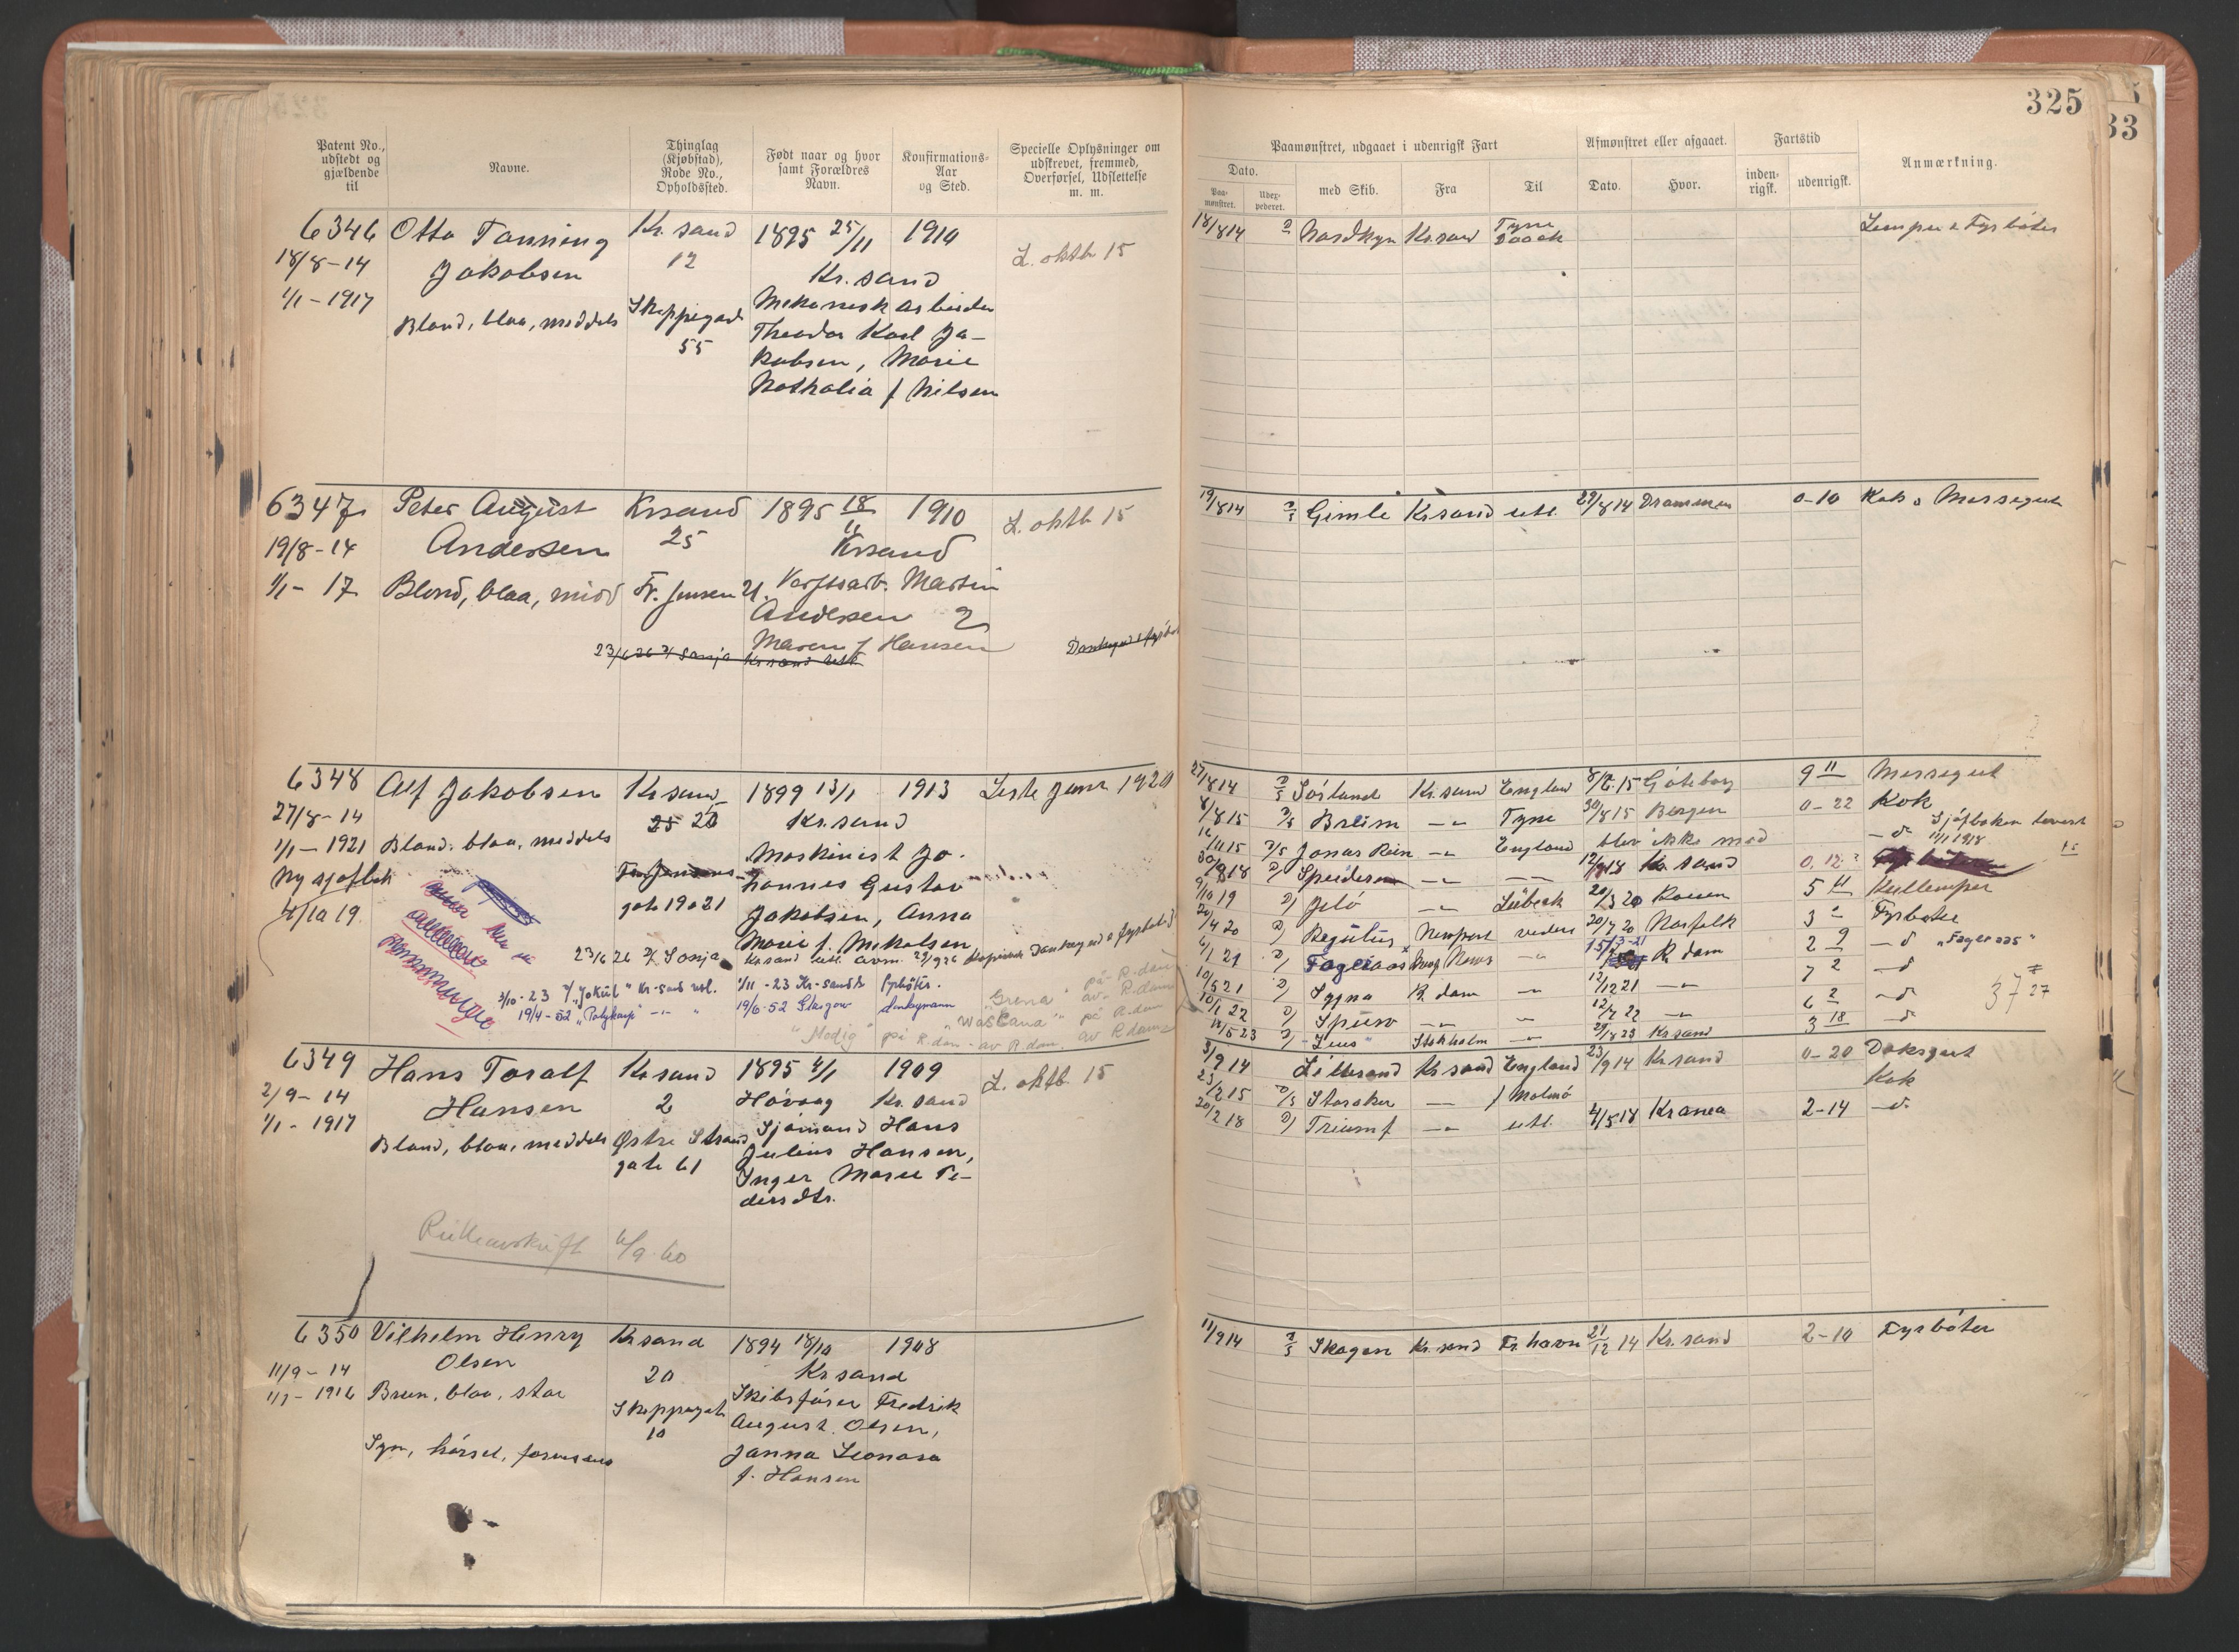 325
33
Patent No., udstedt og gjældende til
Navne.
Thinglag (Kjøbstad), Rode No., Opholdssted.
Født naar og hvor samt Forældres Navn.
Konfirmations-Aar og Sted.
Specielle Oplysninger om udskrevet, fremmed, Overførsel, Udslettelse m. m.
Paamønstret, udgaaet i udenrigsk Fart
Afmønstret eller afgaaet.
Fartstid
Anmærkning.
Dato.
med Skib.
Fra
Til
Dato.
Hvor.
inden-rigsk.
udenrigsk.
Paa-mønstret.
Udex-pederet.
6346 Otto Tanning Kr. sand 1895 25/11 1910
18/8-14 Jakobsen 12 Kr. sand L. oktb 15
1/1-1917 Blond, blaa, meddels Skippergade 55
Mekanisk arbeider
Theodor Karl Ja-
kobsen, Marie
Nathalia f Nilsen
18/8 14 Nordkyn Kr. sand Tyne Dock Lemper & Fyrbøter
6347 Peter August Krsand 1895 18/11 1910 L. oktb 15
19/8-14 Andersen 25 Krsand
1/1-17 Blond, blaa, midd Fr. Jensen 21. Verftsarb. Martin
Andersen
Maren f Hansen
23/6 26 Sonja Kr sand utl
19/8 14 Gimle Krsand utl. 29/8 14 Drammen 0-10 Kok o Messegut
6348 Alf Jakobsen Kr sand 1899 13/1 1913 Liste Janr 1920
27/8-14 25 20 Kr. sand
1/1-1921 Blond. blaa, meddels Maskinist Jo-
Ny sjøfbk hannes Gustav
4/10 19. gate 19 o 21 Jakobsen, Anna
Marie f. Mikalsen
23/6 26 Sonja Kr sand utl avm. 29/9 26
3/10-23 "Jøkul" Kr-sand utl. 1/11-23 Kr-sand Fyrbøter.
19/4-52 "Polykarp" 19/6-52 Glasgow
"Grena" på R.dam av R.dam
"Wascana" på R.dam av R.dam
"Modig" på R.dam - av R.dam.
27/8 14 Sørland Kr. sand England 8/8. 15 Göteborg 9 11 Messegut
8/8 15 Breim Tyne 30/8 15 Bergen 0-22 Kok
Jonas Rein England blev ikke med Sjøfboken levert
Speideren Kr sand 0. 12
19 Jelö Lübeck 20/3 20 Rouen 5 Kullemper
20/4 20 Regulus Newport videre 20/7 20 Norfolk 3 Fyrbøter
6/1 21 Fageraas 15/3-21 R. dam 2 9 "Fageraas"
10/5 21 Sygna R. dam 12/12 21 7 2
10/1 22 Spurv 12/7 22 6 2
"Zeus" Stokholm 29/8 23 Kr sand 3 18
37 27
6349 Hans Toralf Kr sand 1895 4/1 1909 L. oktb. 15
2/9-14 Hansen 2 Høvaag Kr. sand
1/1-1917 Blond, blaa, meddels Østre Strand
gate 61
Sjømand Hans
Julius Hansen,
Inger Marie Pe-
dersdtr.
6/9-60
3/9 14 Lillesand Kr sand England 23/9 14 Kr sand 0-20 Deksgut
23/2 15 Storaker Malmö Kok
20/2 18 Triumf utl. 4/5 18 Kranea 2-14
6350 Vilhelm Henry Kr sand 1894 18/10 1908
11/9-14 Olsen 20 Kr sand
1/1-1916 Brun, blaa, stor Skippergt 10
Skibsfører Fredrik
August Olsen,
Syn, hørsel, farvesans Janna Leonora
f. Hansen
11/9 14 Skagen Kr. sand Fr. havn 21/12 14 Kr. sand 2-10 Fyrbøter